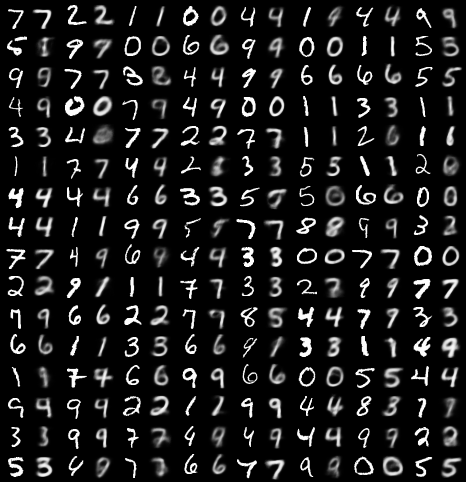 7 7 2 2 1 1 0 0 4 4 1 9 4 4 9 9
5 9 7 0 0 6 6 9 9 0 0 1 1 5 5
9 9 7 7 3 4 4 9 9 6 6 6 6 5 5
4 9 0 0 7 9 4 9 0 0 1 1 3 3 1 1
3 3 4 7 7 2 2 7 7 1 1 2 1 6
1 1 7 7 4 9 2 3 3 5 5 1 1 2 0
4 4 4 4 6 6 3 3 5 5 0 6 6 0 0
4 4 1 1 9 9 5 9 7 7 8 8 9 9 3 3
7 7 4 9 6 9 4 4 3 3 0 0 7 7 0 0
2 2 9 1 1 1 7 7 3 3 2 7 9 9 7 7
7 9 6 6 2 2 7 9 8 5 4 4 7 9 3 3
6 6 1 1 3 3 6 6 9 1 3 3 1 1 4 9
1 1 7 4 6 6 9 9 6 6 0 0 5 5 4 4
9 9 9 9 2 2 1 1 9 9 4 4 8 3 7 7
3 3 9 9 7 7 4 9 4 9 4 4 9 9 2 2
5 3 4 9 7 7 6 6 7 7 9 9 0 0 5 5